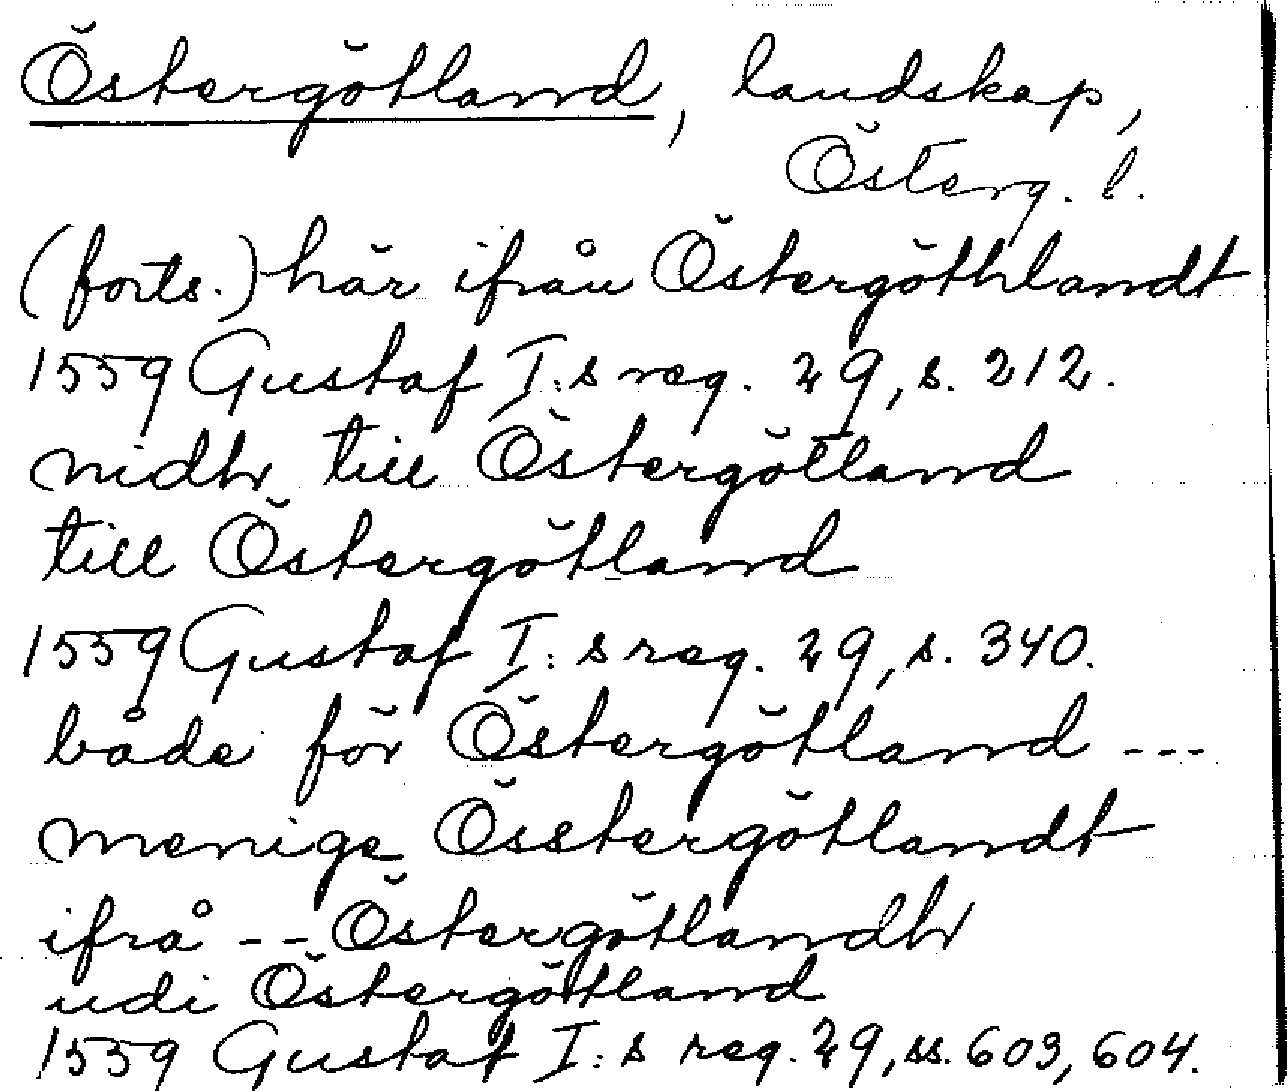 Östergötland, landskap,
Österg. l.
(forts.) här ifrån Östergöthlandt
1559 Gustaf I:s reg. 29, s. 212.
nidh till Östergötland
till Östergötland
1559 Gustaf I:s reg. 29, s. 340.
både för Östergötland ---
menige Össtergötlandt
ifrå -- Östergötlandh
udi Östergötland
1559 Gustaf I:s reg. 29, ss. 603, 604.